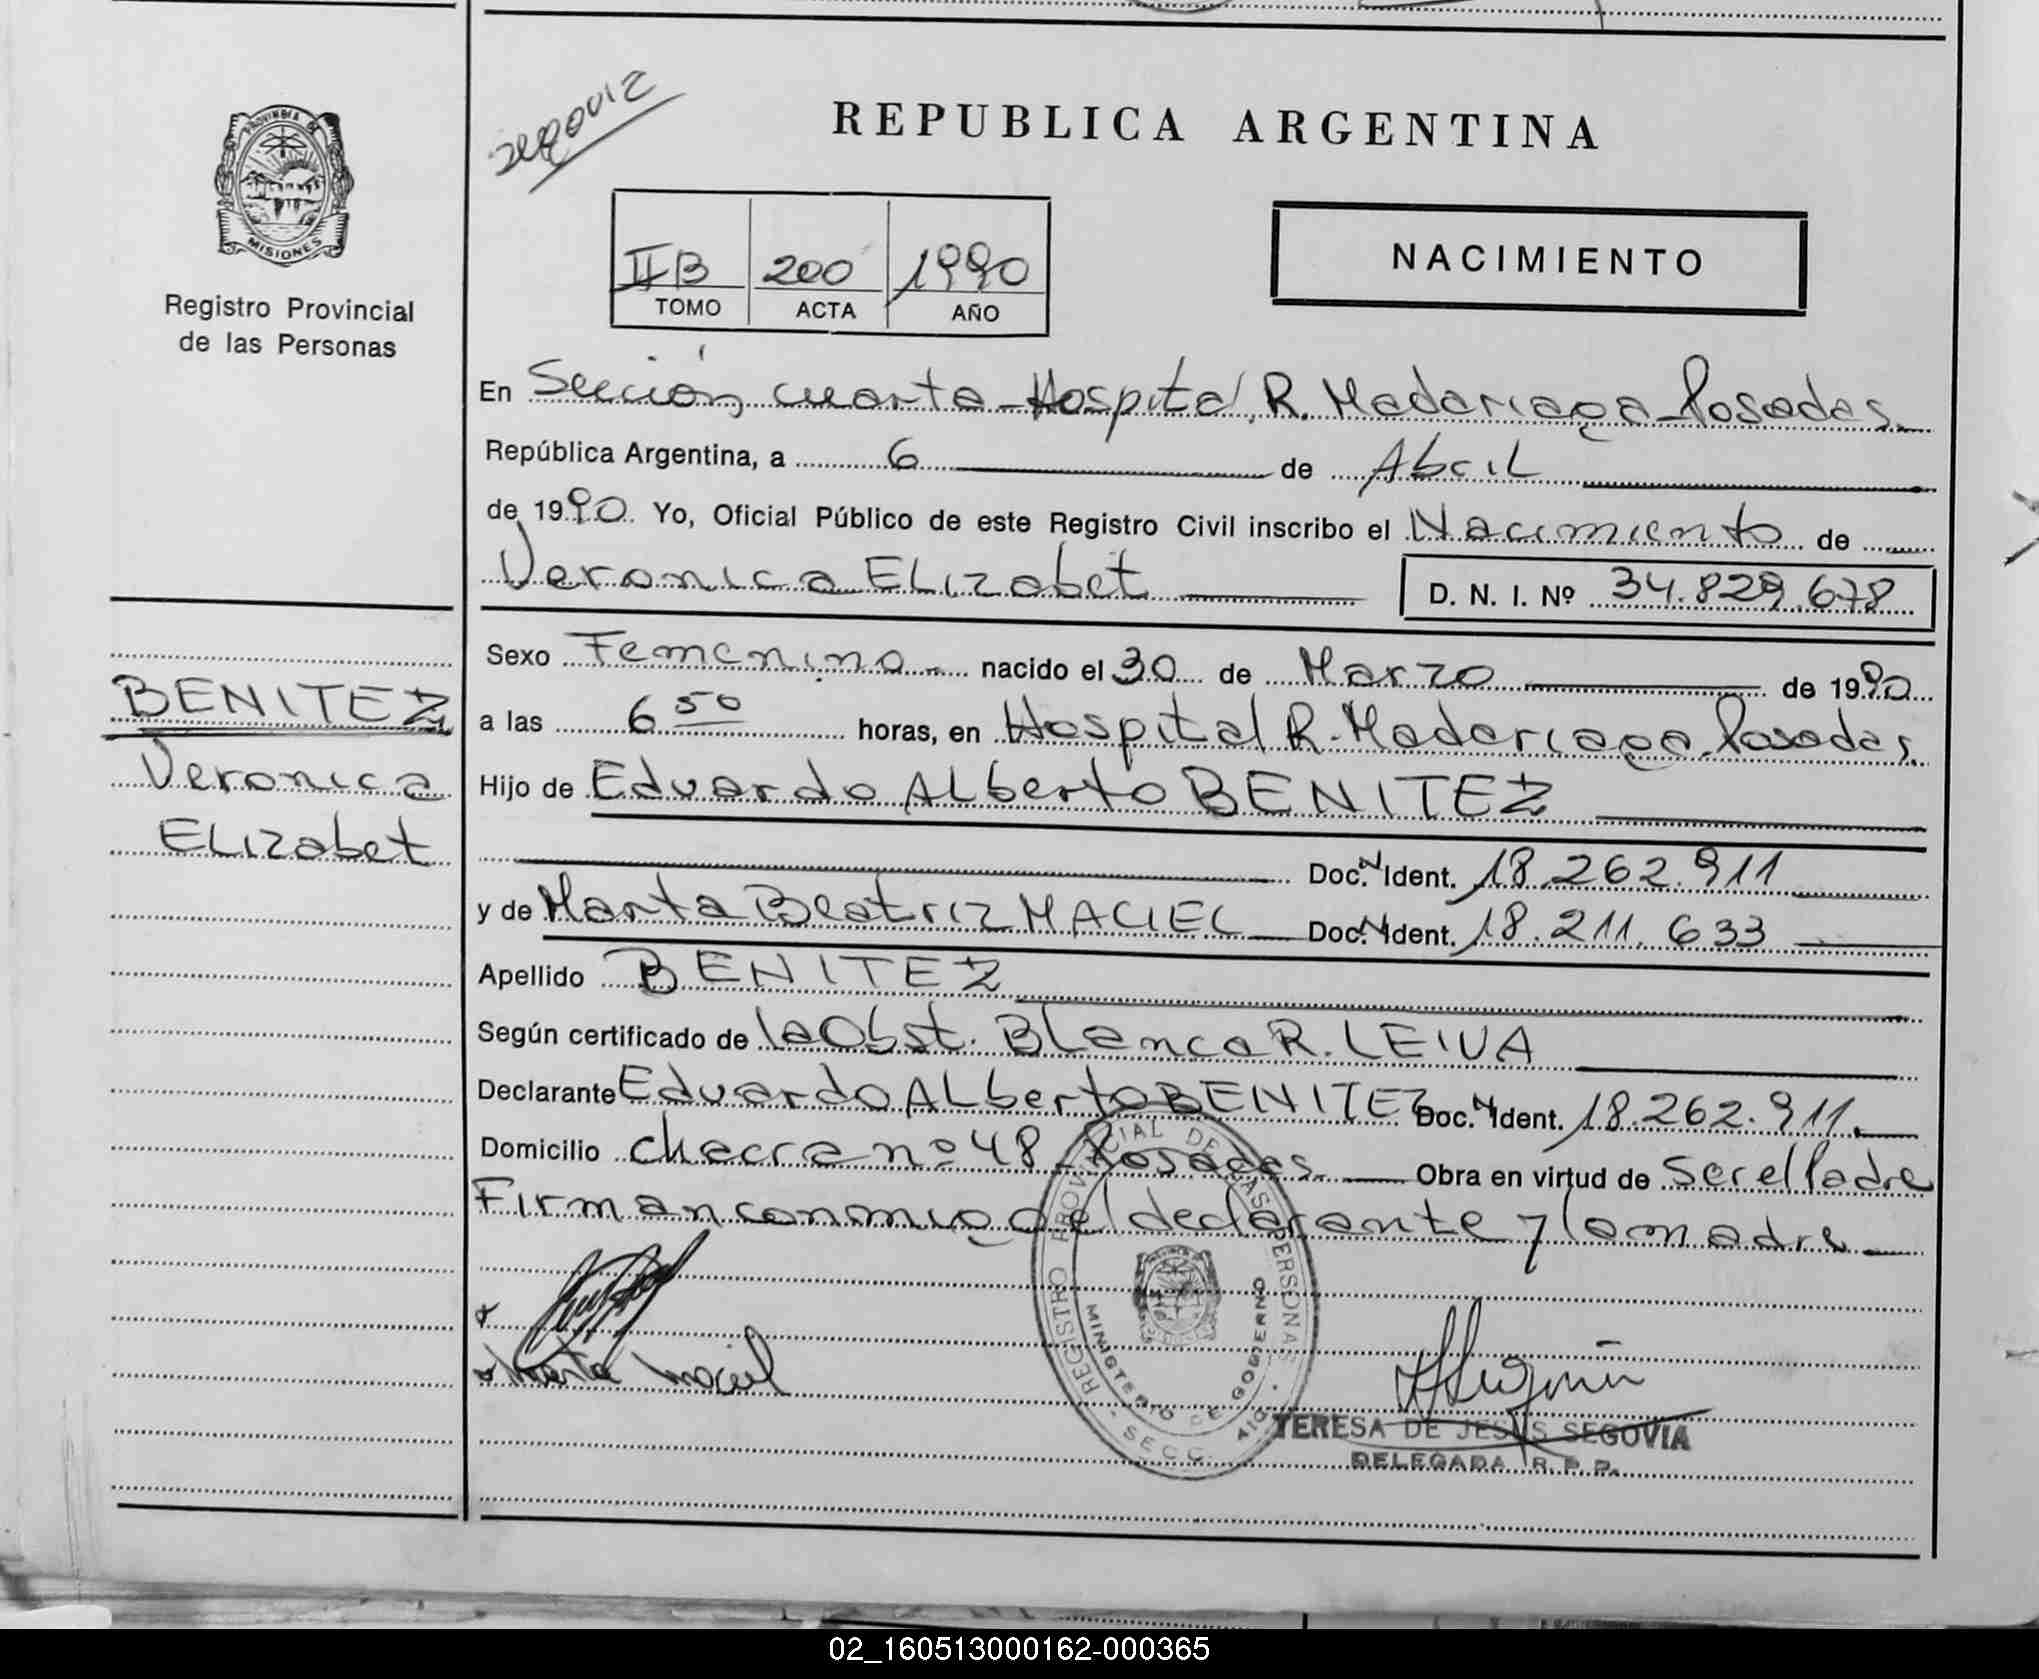 PROVINCIA DE
MISIONES
Registro Provincial
de las Personas
REPUBLICA ARGENTINA
II B 200 1990
TOMO ACTA AÑO
NACIMIENTO
En Sección cuarta - Hospital R. Madariaga - Posadas.
República Argentina, a 6 de Abril
de 1990. Yo, Oficial Público de este Registro Civil inscribo el Nacimiento de
Veronica ELizabet D. N. I. Nº 34.829.678
Sexo Femenino nacido el 30 de Marzo de 1990
a las 6 50 horas, en Hospital R. Madariaga. Posadas.
Hijo de Eduardo ALberto BENITEZ
Doc. N Ident. 18.262.911
y de Marta Beatriz MACIEL Doc. N Ident. 18.211.633
Apellido BENITEZ
Según certificado de la Obst. Blanca R. LEIVA
Declarante Eduardo ALberto BENITEZ Doc. N Ident. 18.262.911.
Domicilio chacra nº 48 - Posadas. Obra en virtud de Ser el Padre
Firman conmigo el declarante y la madre
BENITEZ
Veronica
ELizabet
Marta Maciel
REGISTRO PROVINCIAL DE LAS PERSONAS
MINISTERIO DE GOBIERNO
SECC.
TERESA DE JESUS SEGOVIA
DELEGADA R.P.P.
02_160513000162-000365